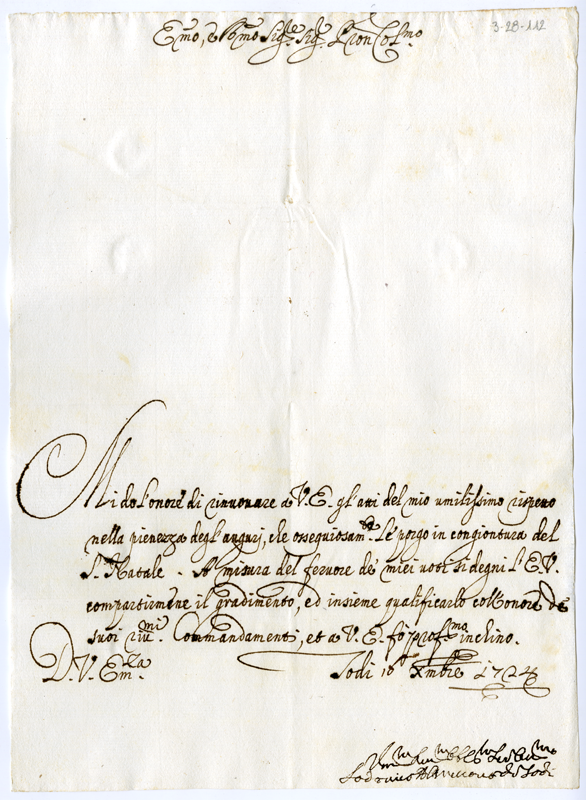 3-28-112
Emo, e Rmo Sigre. Sig. Pron Colmo.
Mi do l'onore di rinuouare a V. E. gl'atti del mio umilissimo rispetto
nella pienezza degl'auguri, che ossequiosamte. Le porgo in congiontura del
S. Natale. A misura del feruore de miei uoti si degni l'E. V.
compartirmene il gradimento, ed insieme qualificarlo coll'onore de
suoi riu.mi Commandamenti, et a V. E. fo prof.mo inchino.
D. V. Em.za
Lodi 10 Xmbre 1724
Lodi